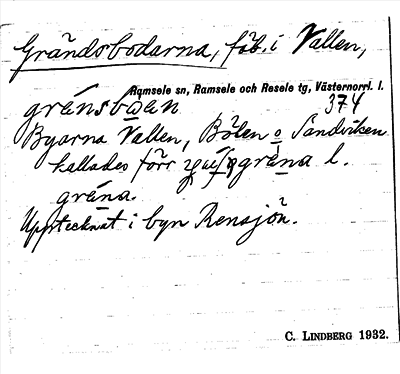 Grändsbodarna, fäb. i Vallen,
Ramsele sn, Ramsele och Resele tg, Västernorrl. l.
gränsbɷan 374
Byarna Vallen, Bölen o Sandviken
kallades förr gräna l.
gräna.
Upptecknat i byn Rensjön.
C. LINDBERG 1932.